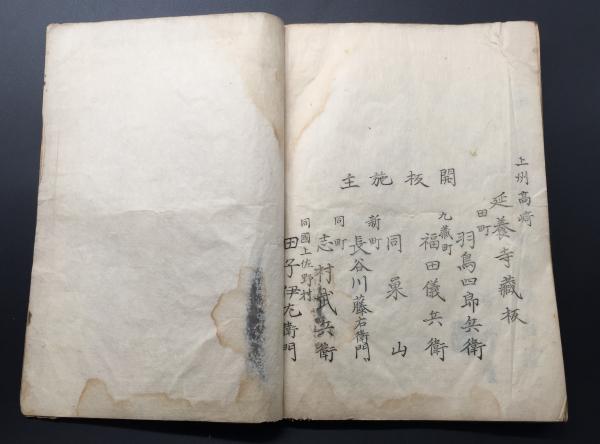 上州高崎
延養寺藏板
開板施主
田町
羽鳥四郎兵衛
九藏町
福田儀兵衛
同菓山
新町
長谷川藤右衛門
同町
志村武兵衛
同國上佐野村
田子伊左衛門